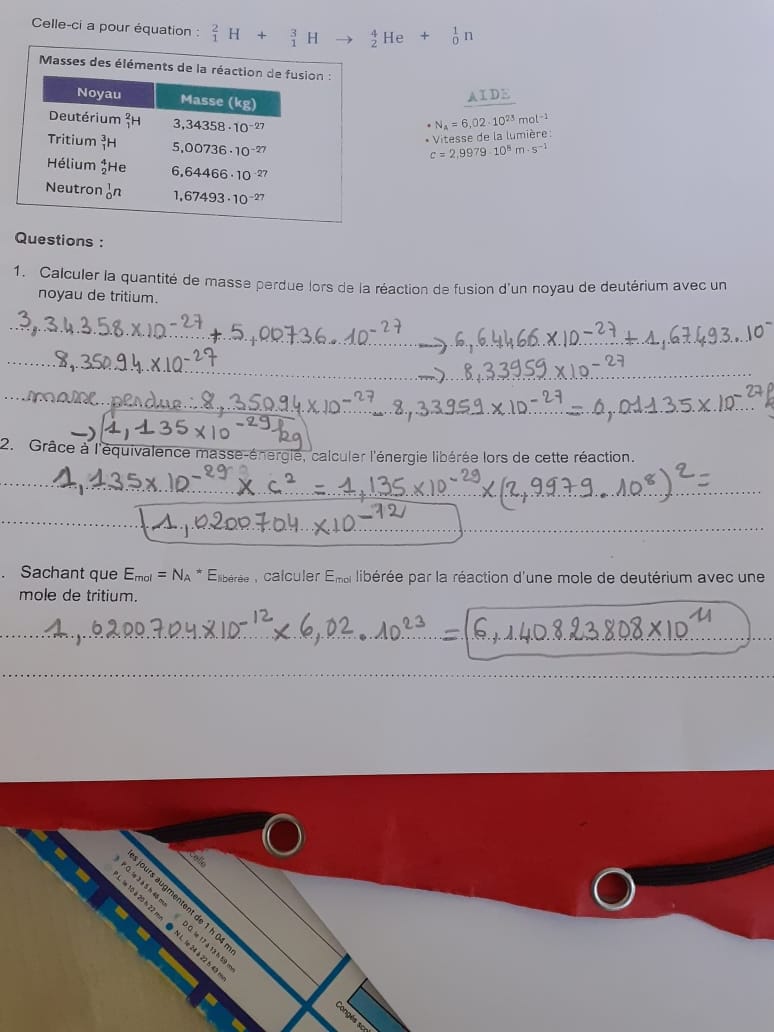 Celle-ci a pour équation : ²₁H + ³₁H → ⁴₂He + ¹₀n
Masses des éléments de la réaction de fusion :
Noyau Masse (kg)
Deutérium ²₁H 3,34358·10⁻²⁷
Tritium ³₁H 5,00736·10⁻²⁷
Hélium ⁴₂He 6,64466·10⁻²⁷
Neutron ¹₀n 1,67493·10⁻²⁷
AIDE
• Nᴀ = 6,02·10²³ mol⁻¹
• Vitesse de la lumière :
c = 2,9979·10⁸ m·s⁻¹
Questions :
1. Calculer la quantité de masse perdue lors de la réaction de fusion d'un noyau de deutérium avec un
noyau de tritium.
3,34358×10⁻²⁷ + 5,00736.10⁻²⁷ → 6,64466×10⁻²⁷ + 1,67493.10⁻
8,35094×10⁻²⁷ → 8,33959×10⁻²⁷
masse perdue : 8,35094×10⁻²⁷ - 8,33959×10⁻²⁷ = 0,01135×10⁻²⁷
→ 1,135×10⁻²⁹ kg
2. Grâce à l'équivalence masse-énergie, calculer l'énergie libérée lors de cette réaction.
1,135×10⁻²⁹ × c² = 1,135×10⁻²⁹ × (2,9979.10⁸)² =
1,0200704×10⁻¹²
. Sachant que Emol = Nᴀ * Elibérée , calculer Emol libérée par la réaction d'une mole de deutérium avec une
mole de tritium.
1,0200704×10⁻¹² × 6,02.10²³ = 6,140823808×10¹¹
celle
les jours augmentent de 1 h 04 mn
Congés sco